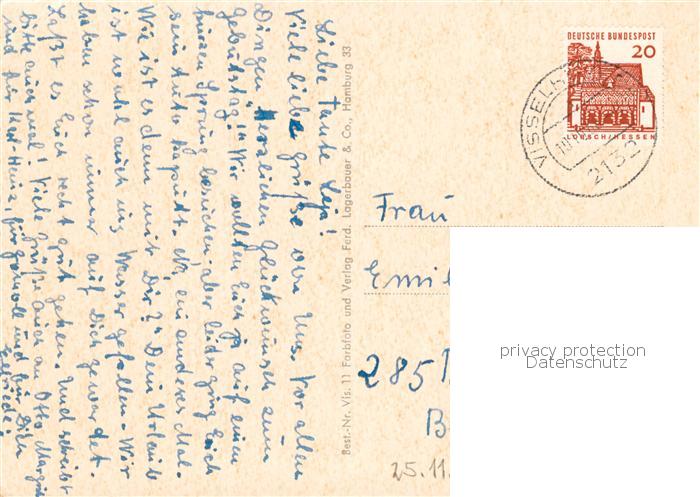 Liebe Tante Leja!
Viele liebe Grüße von uns. Vor allen
Dingen "Herzlichen Glückwunsch zum
Geburtstag". Wir wollten Euch ja auf einen
kurzen Sprung besuchen, aber leider ging Euch
sein Auto kaputt. Na, ein anderes Mal.
Wie ist es denn mit Dir? Dein Urlaub
ist wohl auch ins Wasser gefallen. Wir
haben schon immer auf Dich gewartet.
Laßt es Euch recht gut gehen. Und schreibt
bitte auch mal! Viele Grüße auch an Otto, Margrit
und für Karl-Heinz, für
Elfriede!
Best.-Nr. Vis. 11 Farbfoto und Verlag Ferd. Lagerbauer & Co., Hamburg 33
DEUTSCHE BUNDESPOST
20
LORSCH/HESSEN
VISSELH
2132
Frau
Emil
285
B
25.11.
privacy protection
Datenschutz